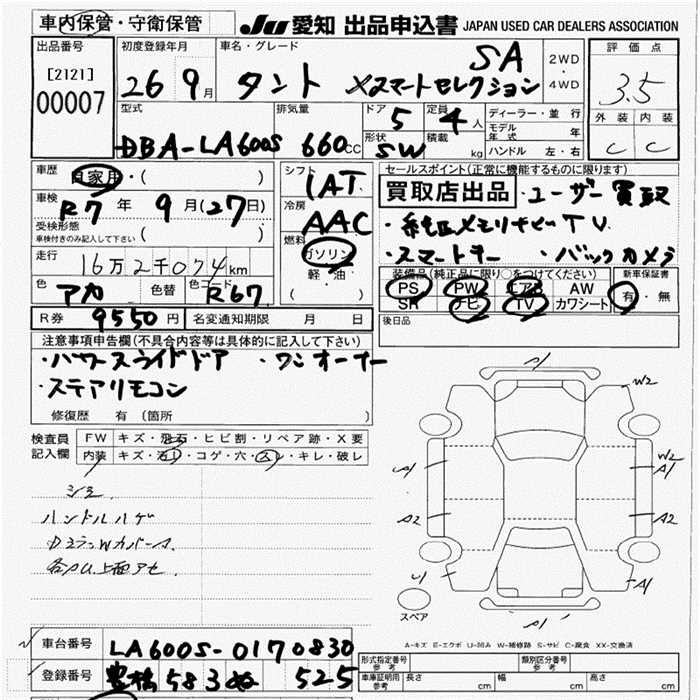 車内保管・守衛保管
JU 愛知 出品申込書 JAPAN USED CAR DEALERS ASSOCIATION
出品番号
[2121]
00007
初度登録年月
26 9月
車名・グレード
タント XスマートセレクションSA
2WD
・
4WD
評価点
3.5
外装 内装
C C
型式
DBA-LA600S
排気量
660cc
ドア
5
定員
4人
形状
SW
積載
kg
ディーラー・並行
モデル年式 年
ハンドル 左・右
車歴 自家用・( )
車検 R7年 9月(27日)
受検形態
車検付きのみ記入して下さい ( )
走行 16万2千074km
色 アカ 色替 色コード R67
R券 9550円 名変通知期限 月 日
シフト
IAT
冷房
AAC
燃料
ガソリン
・
軽・油
( )
セールスポイント(正常に機能するものに限ります)
買取店出品 ・ユーザー買取
・純正メモリナビTV
・スマートキー ・バックカメラ
装備品(純正品に限り○をつけてください)
PS PW エアB AW
SR ナビ TV カワシート
新車保証書
有・無
後日品
注意事項申告欄(不具合内容等は具体的に記入して下さい)
・パワースライドドア ・ワンオーナー
・ステアリモコン
修復歴 有(箇所
検査員記入欄
FW キズ・飛石・ヒビ割・リペア跡・X要
内装 キズ・汚レ・コゲ・穴・スレ・キレ・破レ
シミ
ハンドルハゲ
A1
W2
A1
W2
A1
A2
A2
U1
A1
A1
スペア
A-キズ E-エクボ U-凹み W-補修跡 S-サビ C-腐食 XX-交換済
車台番号 LA600S-0170830
登録番号 豊橋 583 ぬ 525
形式指定番号
参考
類別区分番号
参考
車庫証明用
参考
長さ cm 幅 cm 高さ cm